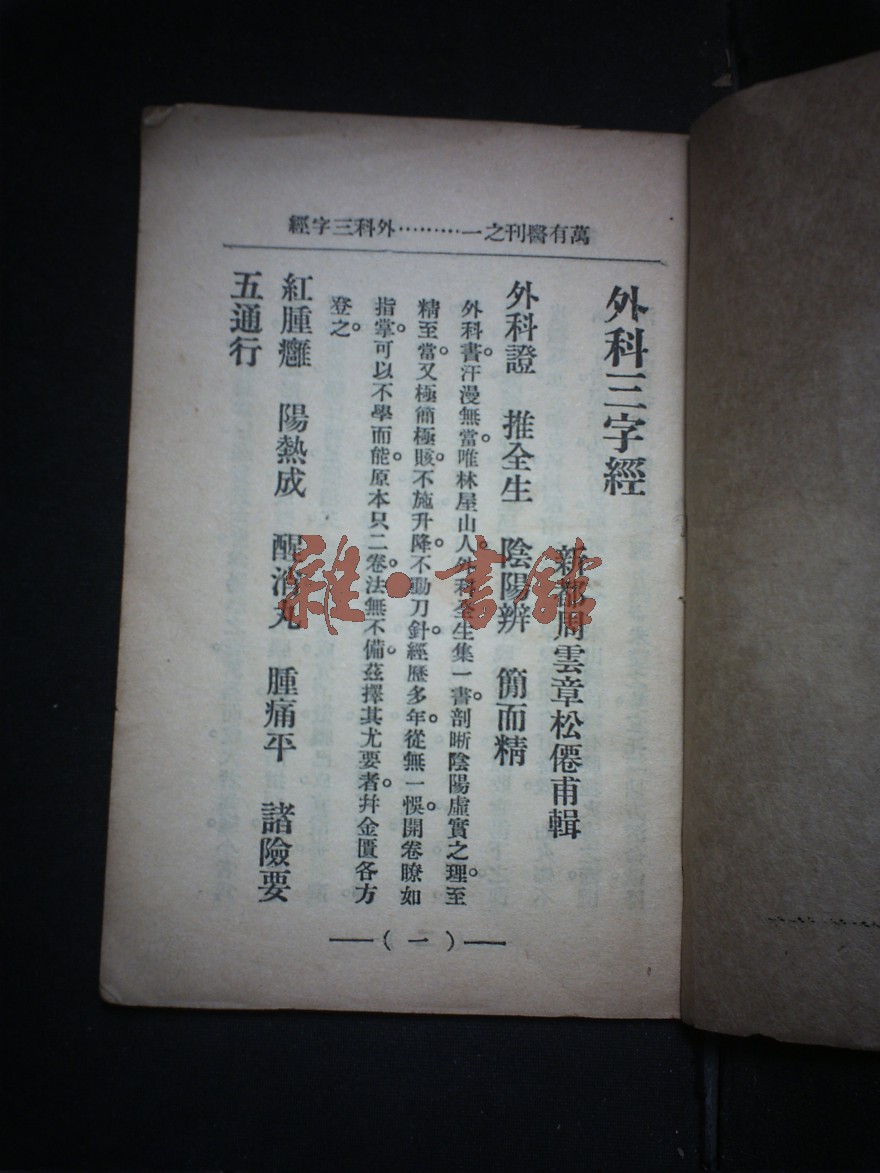 萬有醫刊之一………外科三字經
外科三字經
新都周雲章松僊甫輯
外科證　推全生　陰陽辨　簡而精
外科書。汗漫無當。唯林屋山人外科全生集一書。剖晰陰陽虛實之理。至
精至當。又極簡極賅。不施升降。不動刀針。經歷多年。從無一悞。開卷瞭如
指掌。可以不學而能。原本只二卷。法無不備。茲擇其尤要者。幷金匱各方
登之。
紅腫癰　陽熱成　醒消丸　腫痛平　諸險要
五通行
—（一）—
雜·書館